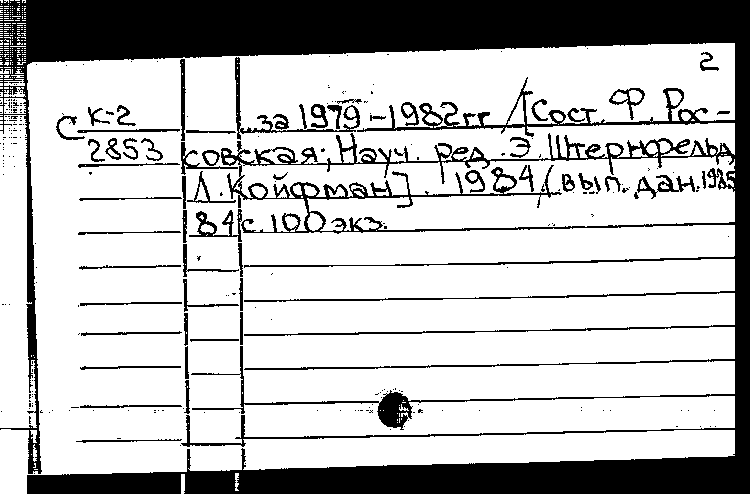 2
С К-2 ...за 1979-1982гг /[Сост. Ф. Рос-
2853 совская; Науч. ред. Э. Штернфельд
Л. Койфман]. 1984 (вып. дан. 1985
84 с. 100 экз.